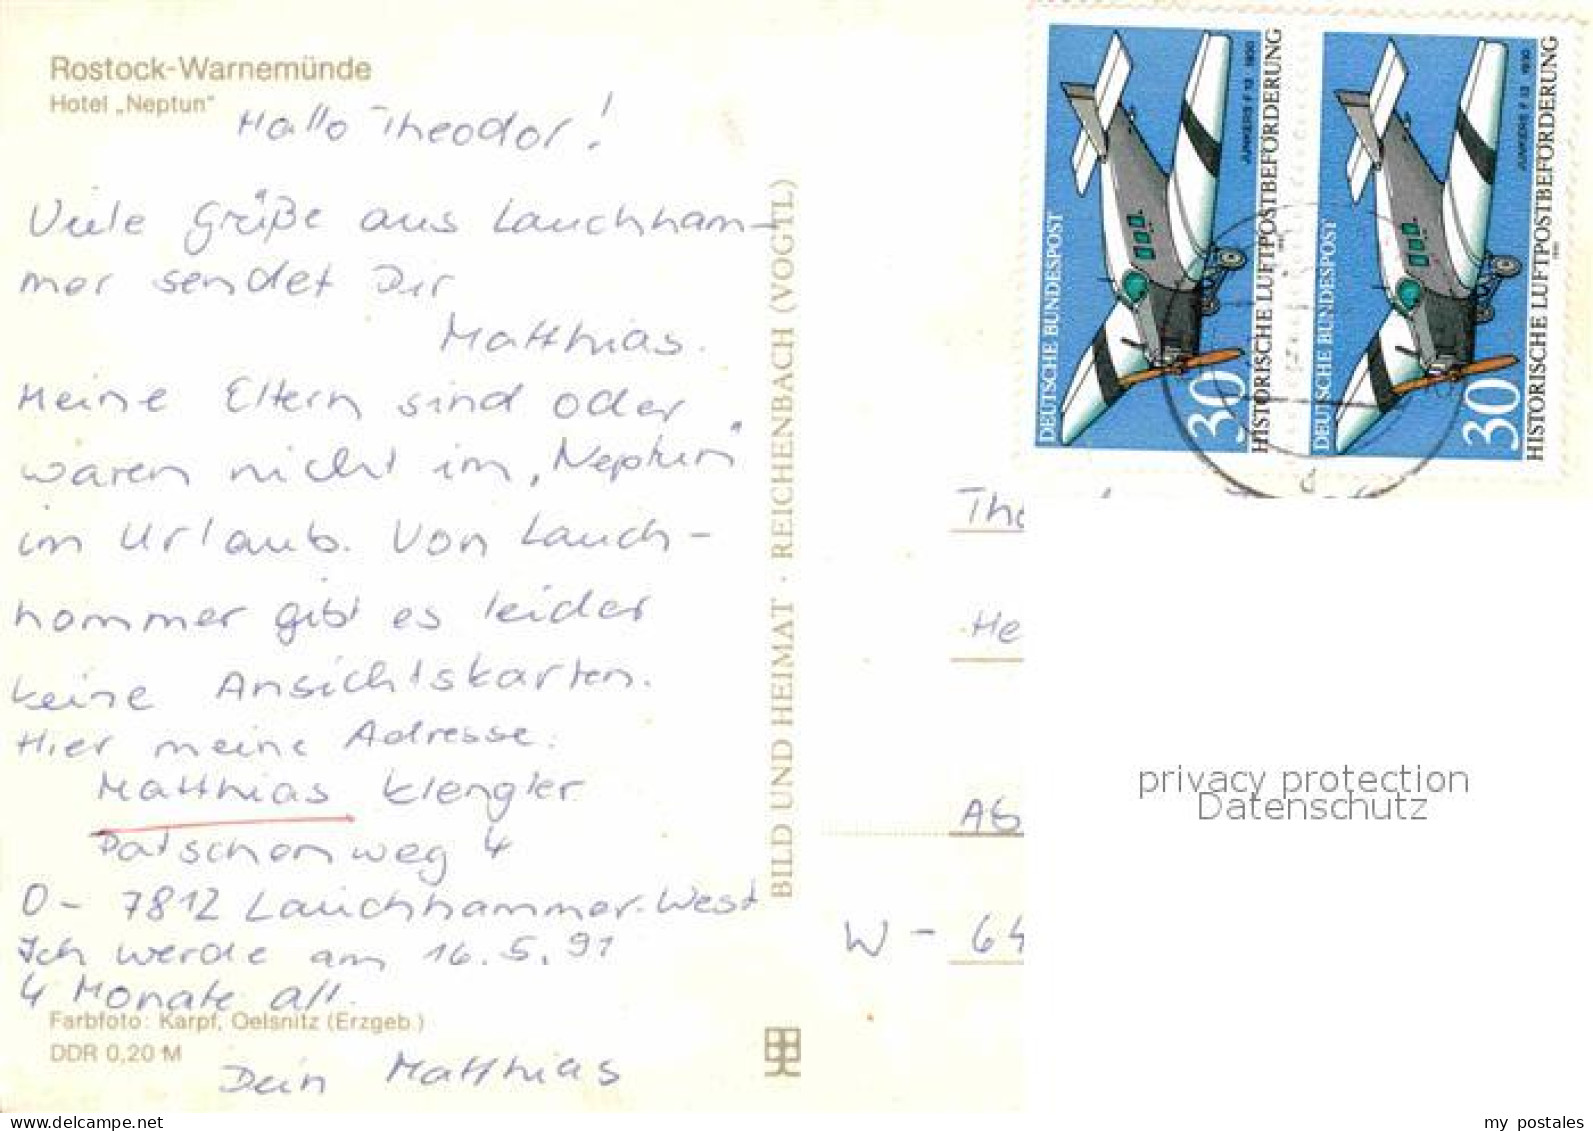 Rostock-Warnemünde
Hotel „Neptun“
Hallo Theodor!
Viele Grüße aus Lauchham-
mer sendet Dir
Matthias.
Meine Eltern sind oder
waren nicht im „Neptun“
im Urlaub. Von Lauch-
hammer gibt es leider
keine Ansichtskarten.
Hier meine Adresse:
Matthias Klengler
4
O- 7812 Lauchhammer-West
Ich werde am 16.5.91
4 Monate alt.
Farbfoto: Karpf, Oelsnitz (Erzgeb.)
DDR 0,20 M
Dein Matthias
BILD UND HEIMAT · REICHENBACH (VOGTL)
DEUTSCHE BUNDESPOST
30
JUNKERS F 13 1930
HISTORISCHE LUFTPOSTBEFÖRDERUNG
DEUTSCHE BUNDESPOST
30
JUNKERS F 13 1930
HISTORISCHE LUFTPOSTBEFÖRDERUNG
W - 64
privacy protection
Datenschutz
www.delcampe.net
my_postales